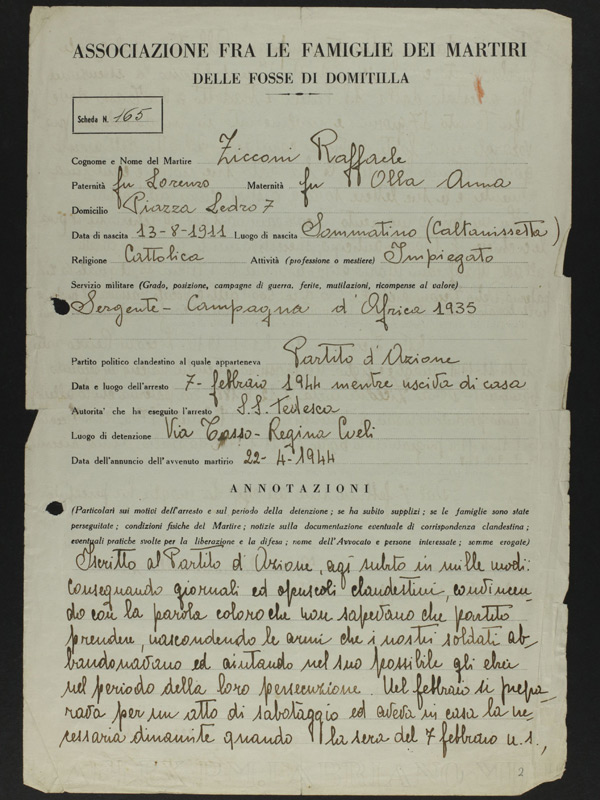 ASSOCIAZIONE FRA LE FAMIGLIE DEI MARTIRI
DELLE FOSSE DI DOMITILLA
Scheda N. 165
Cognome e Nome del Martire Zicconi Raffaele
Paternità fu Lorenzo Maternità fu Olla Anna
Domicilio Piazza Ledro 7
Data di nascita 13-8-1911 Luogo di nascita Sommatino (Caltanissetta)
Religione Cattolica Attività (professione o mestiere) Impiegato
Servizio militare (Grado, posizione, campagne di guerra, ferite, mutilazioni, ricompense al valore)
Sergente - Campagna d'Africa 1935
Partito politico clandestino al quale apparteneva Partito d'Azione
Data e luogo dell'arresto 7- febbraio 1944 mentre usciva di casa
Autorita' che ha eseguito l'arresto S.S. Tedesca
Luogo di detenzione Via Tasso - Regina Coeli
Data dell'annuncio dell'avvenuto martirio 22-4-1944
ANNOTAZIONI
(Particolari sui motivi dell'arresto e sul periodo della detenzione ; se ha subito supplizi ; se le famiglie sono state
perseguitate ; condizioni fisiche del Martire ; notizie sulla documentazione eventuale di corrispondenza clandestina ;
eventuali pratiche svolte per la liberazione e la difesa ; nome dell'Avvocato e persone interessate ; somme erogate)
Iscritto al Partito d'Azione, agì subito in mille modi:
consegnando giornali ed opuscoli clandestini, convincen-
do con la parola coloro che non sapevano che partito
prendere, nascondendo le armi che i nostri soldati ab-
bandonavano ed aiutando nel suo possibile gli ebrei
nel periodo della loro persecuzione. Nel febbraio si prepa-
rava per un atto di sabotaggio ed aveva in casa la ne-
cessaria dinamite quando la sera del 7 febbraio u.s.,
2